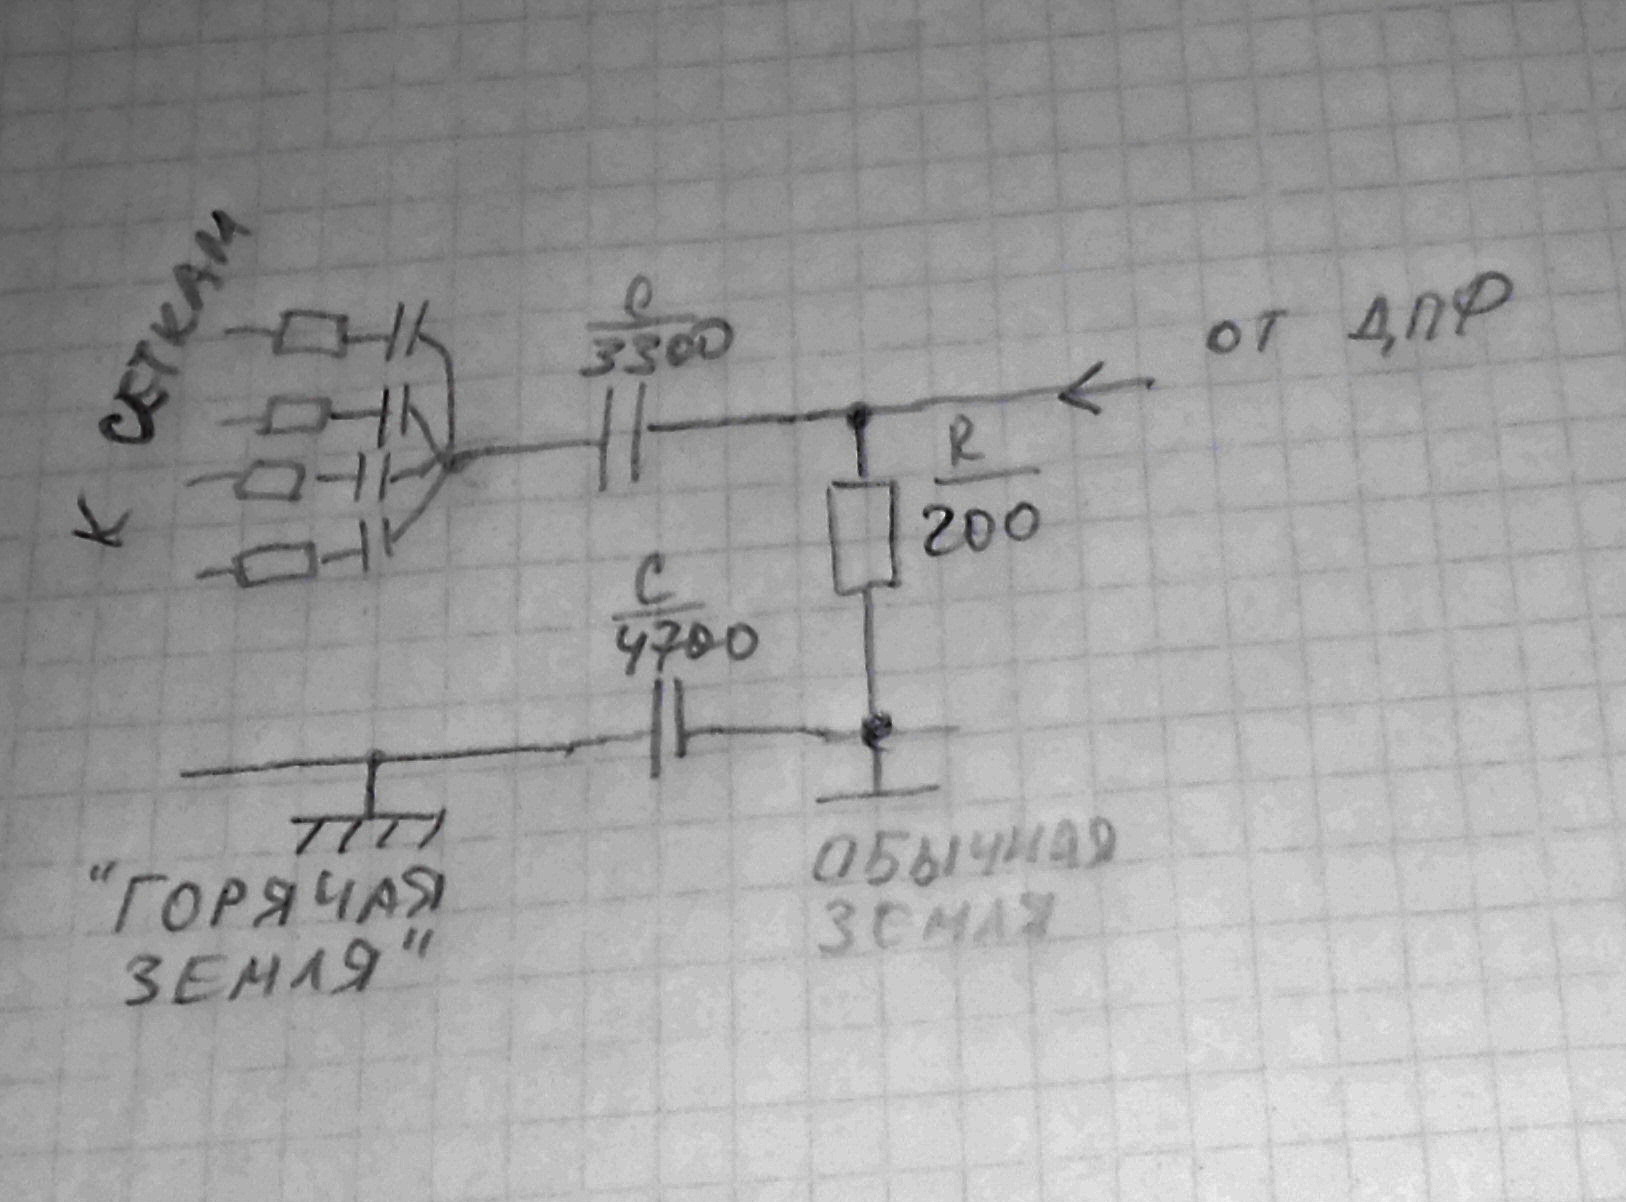 К СЕТКАМ
C
3300
ОТ ДПФ
R
200
C
4700
"ГОРЯЧАЯ
ЗЕМЛЯ"
ОБЫЧНАЯ
ЗЕМЛЯ